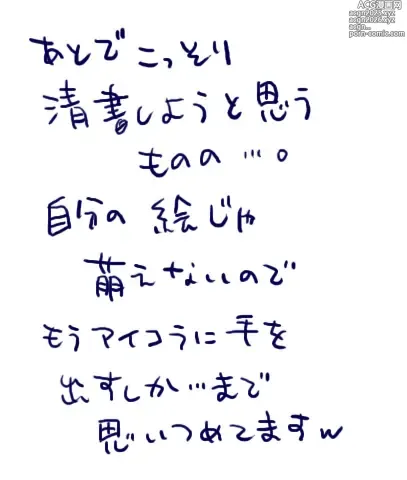 ACG漫画网
acgn2025.xyz
acgn2026.xyz
acgn...
porn-comic.com
あとでこっそり
清書しようと思う
ものの…。
自分の絵じゃ
萌えないので
もうアイコラに手を
出すしか…まで
思いつめてますw